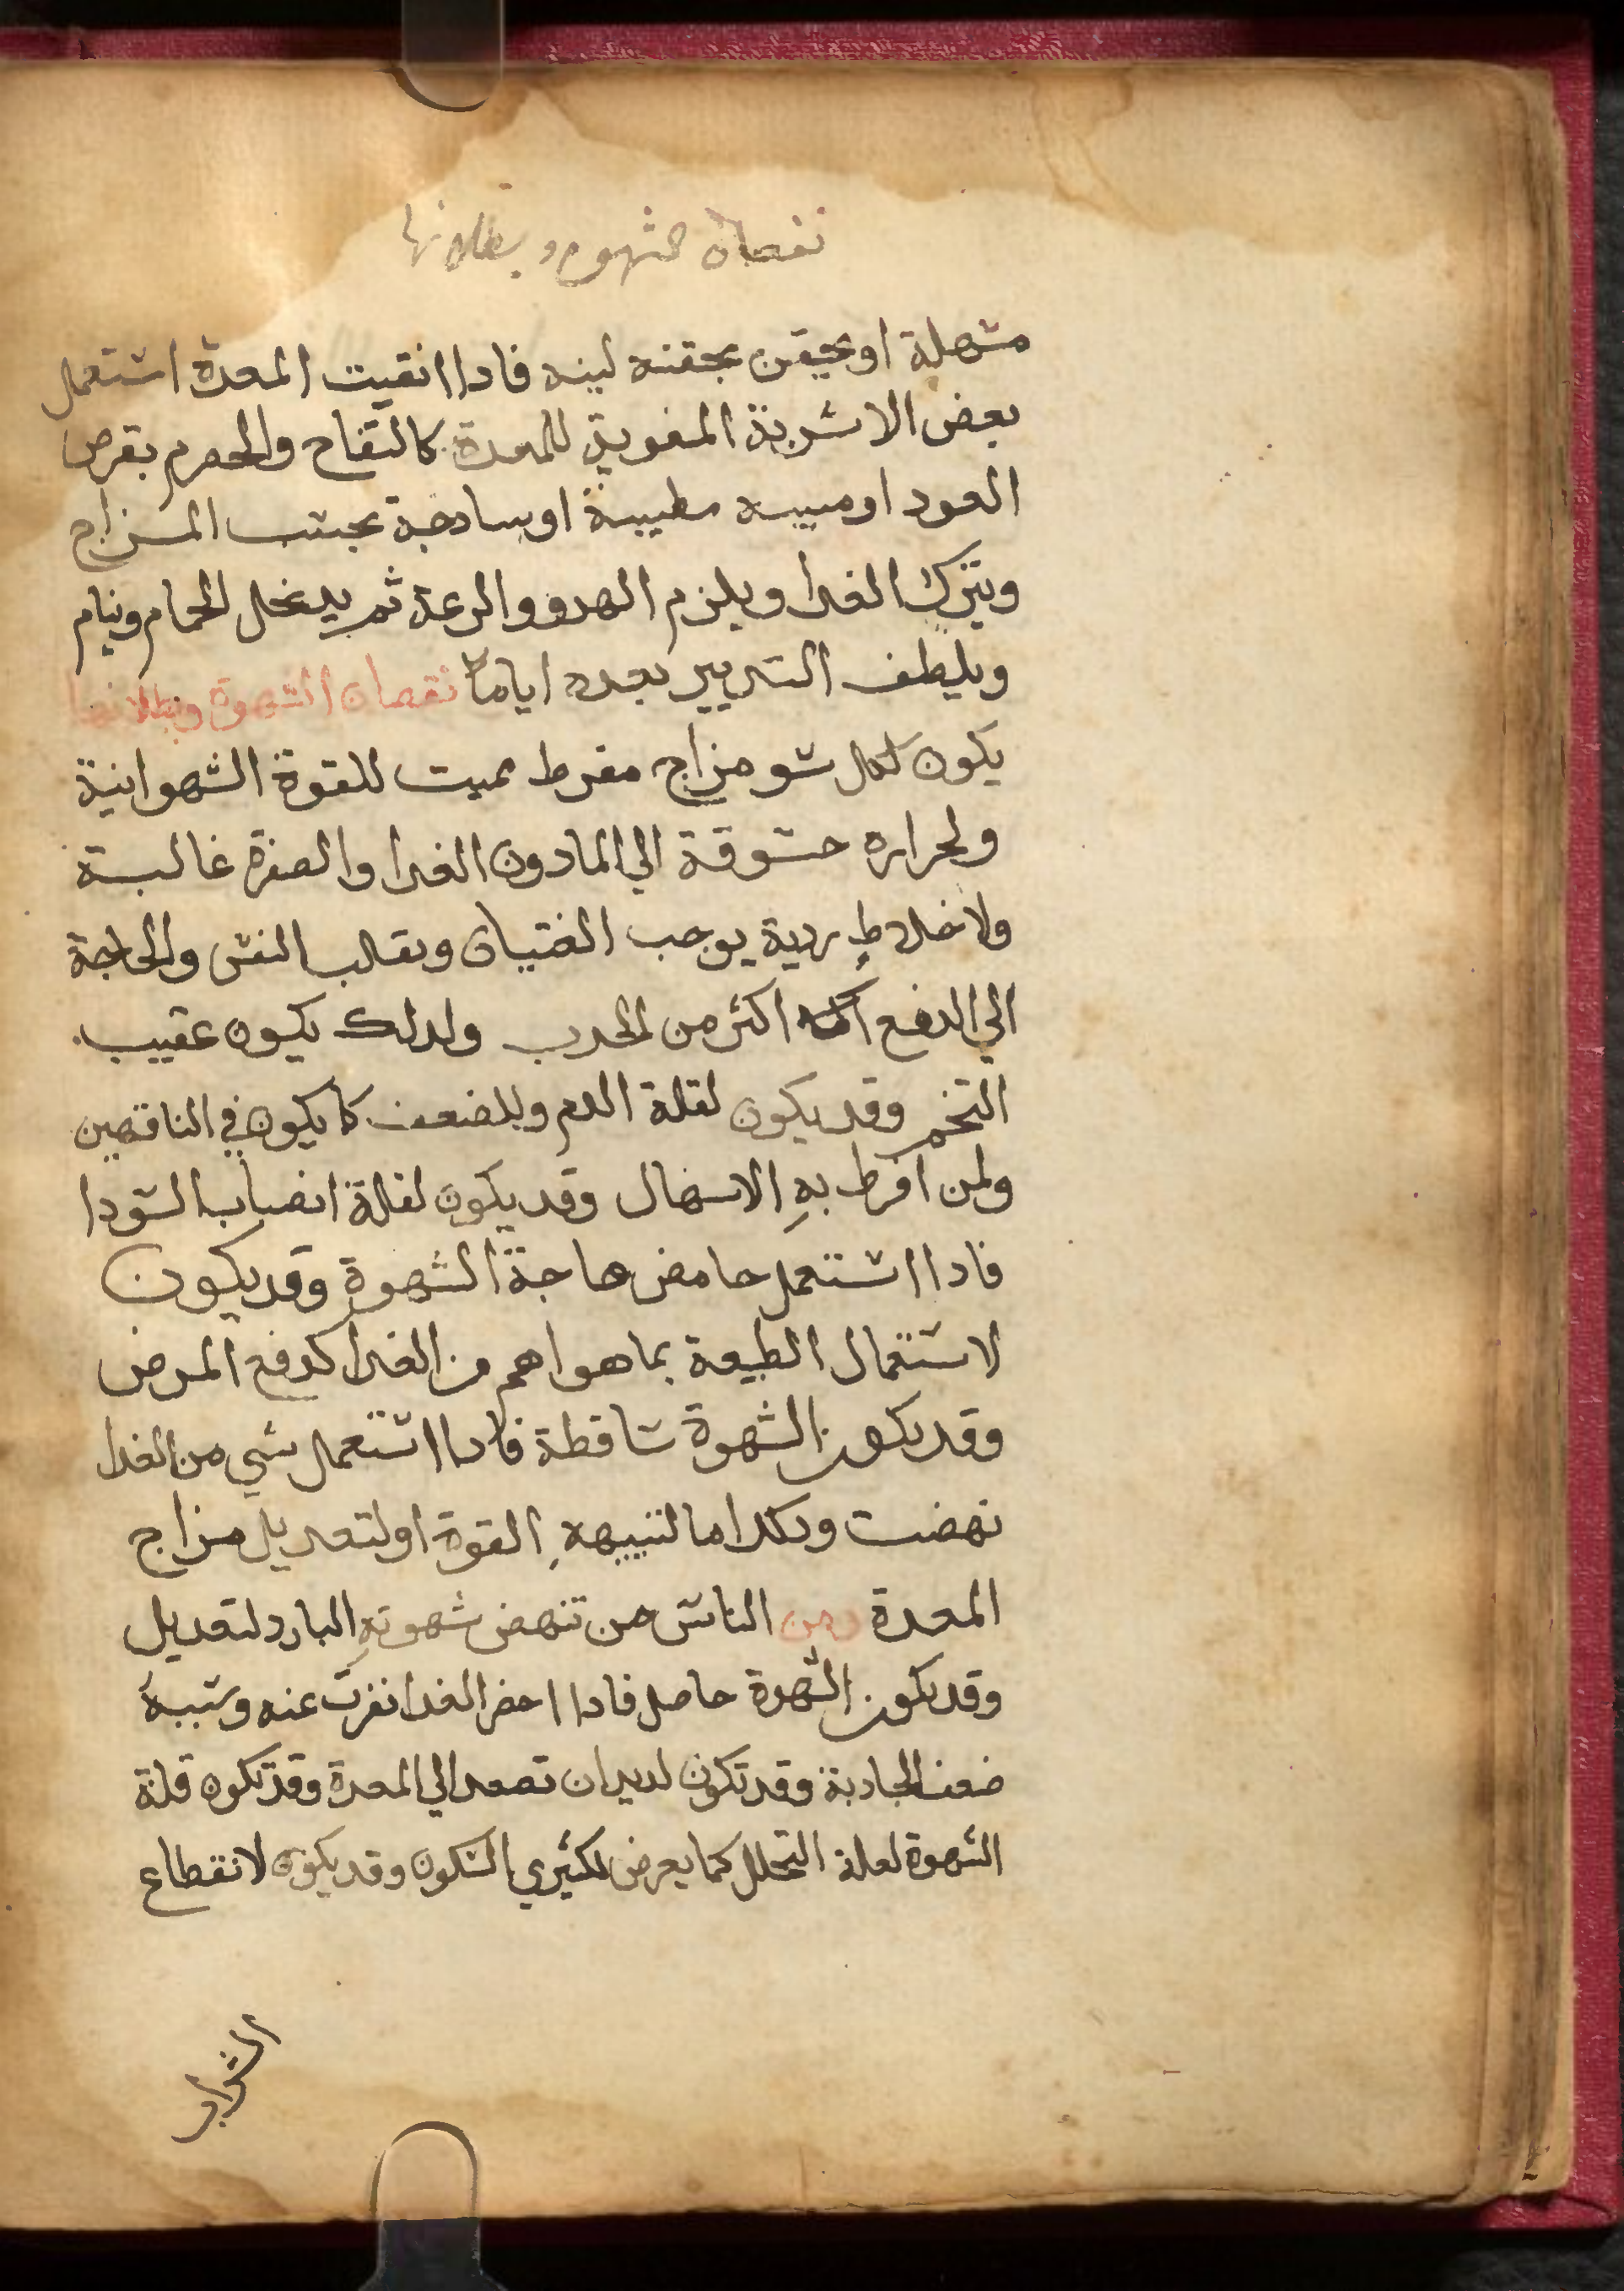 نقصان الشهوه وبطلانها
مسهلة او يحقن بحقنه لينه فادا انقيت المعدة استعمل
بعض الاشربة المقوية للمعدة كالتفاح والحصرم بقرص
العود او ميبه مطيبة او سادجة بحسب المزاج
ويترك الغدا ويلزم الهدو والدعة ثم يدخل الحمام وينام
ويلطف التدبير بعده اياما نقصان الشهوة وبطلانها
يكون لكل سو مزاج مفرط مميت للقوة الشهوانية
ولحراره مشوقة الي الما دون الغدا والصفرة غالبة
ولاخلاط ردية يوجب الغتيان وتقلب النفس والحاجة
الي الدفع اكثر من الجدب ولدلك يكون عقيب
التخم وقد يكون لقلة الدم وللضعف كما يكون في الناقهين
ولمن افرط به الاسهال وقد يكون لقلة انصباب السودا
فادا استعمل حامض هاجة الشهوة وقد يكون
لاشتغال الطبيعة بما هو اهم من الغدا كدفع المرض
وقد يكون الشهوة ساقطة فادا استعمل شي من الغدا
نهضت ودلك اما لتنبيهه القوة او لتعديل مزاج
المعدة ومن الناس من تنهض شهوته البارد لتعديل
وقد يكون الشهوة حاصل فادا احضر الغدا نفرت عنه وسببه
ضعف الجادبة وقد تكون لديدان تصعد الي المعدة وقد تكون قلة
الشهوة لقلة التحلل كما يعرض لكثيري السكون وقد يكون لانقطاع
الشراب